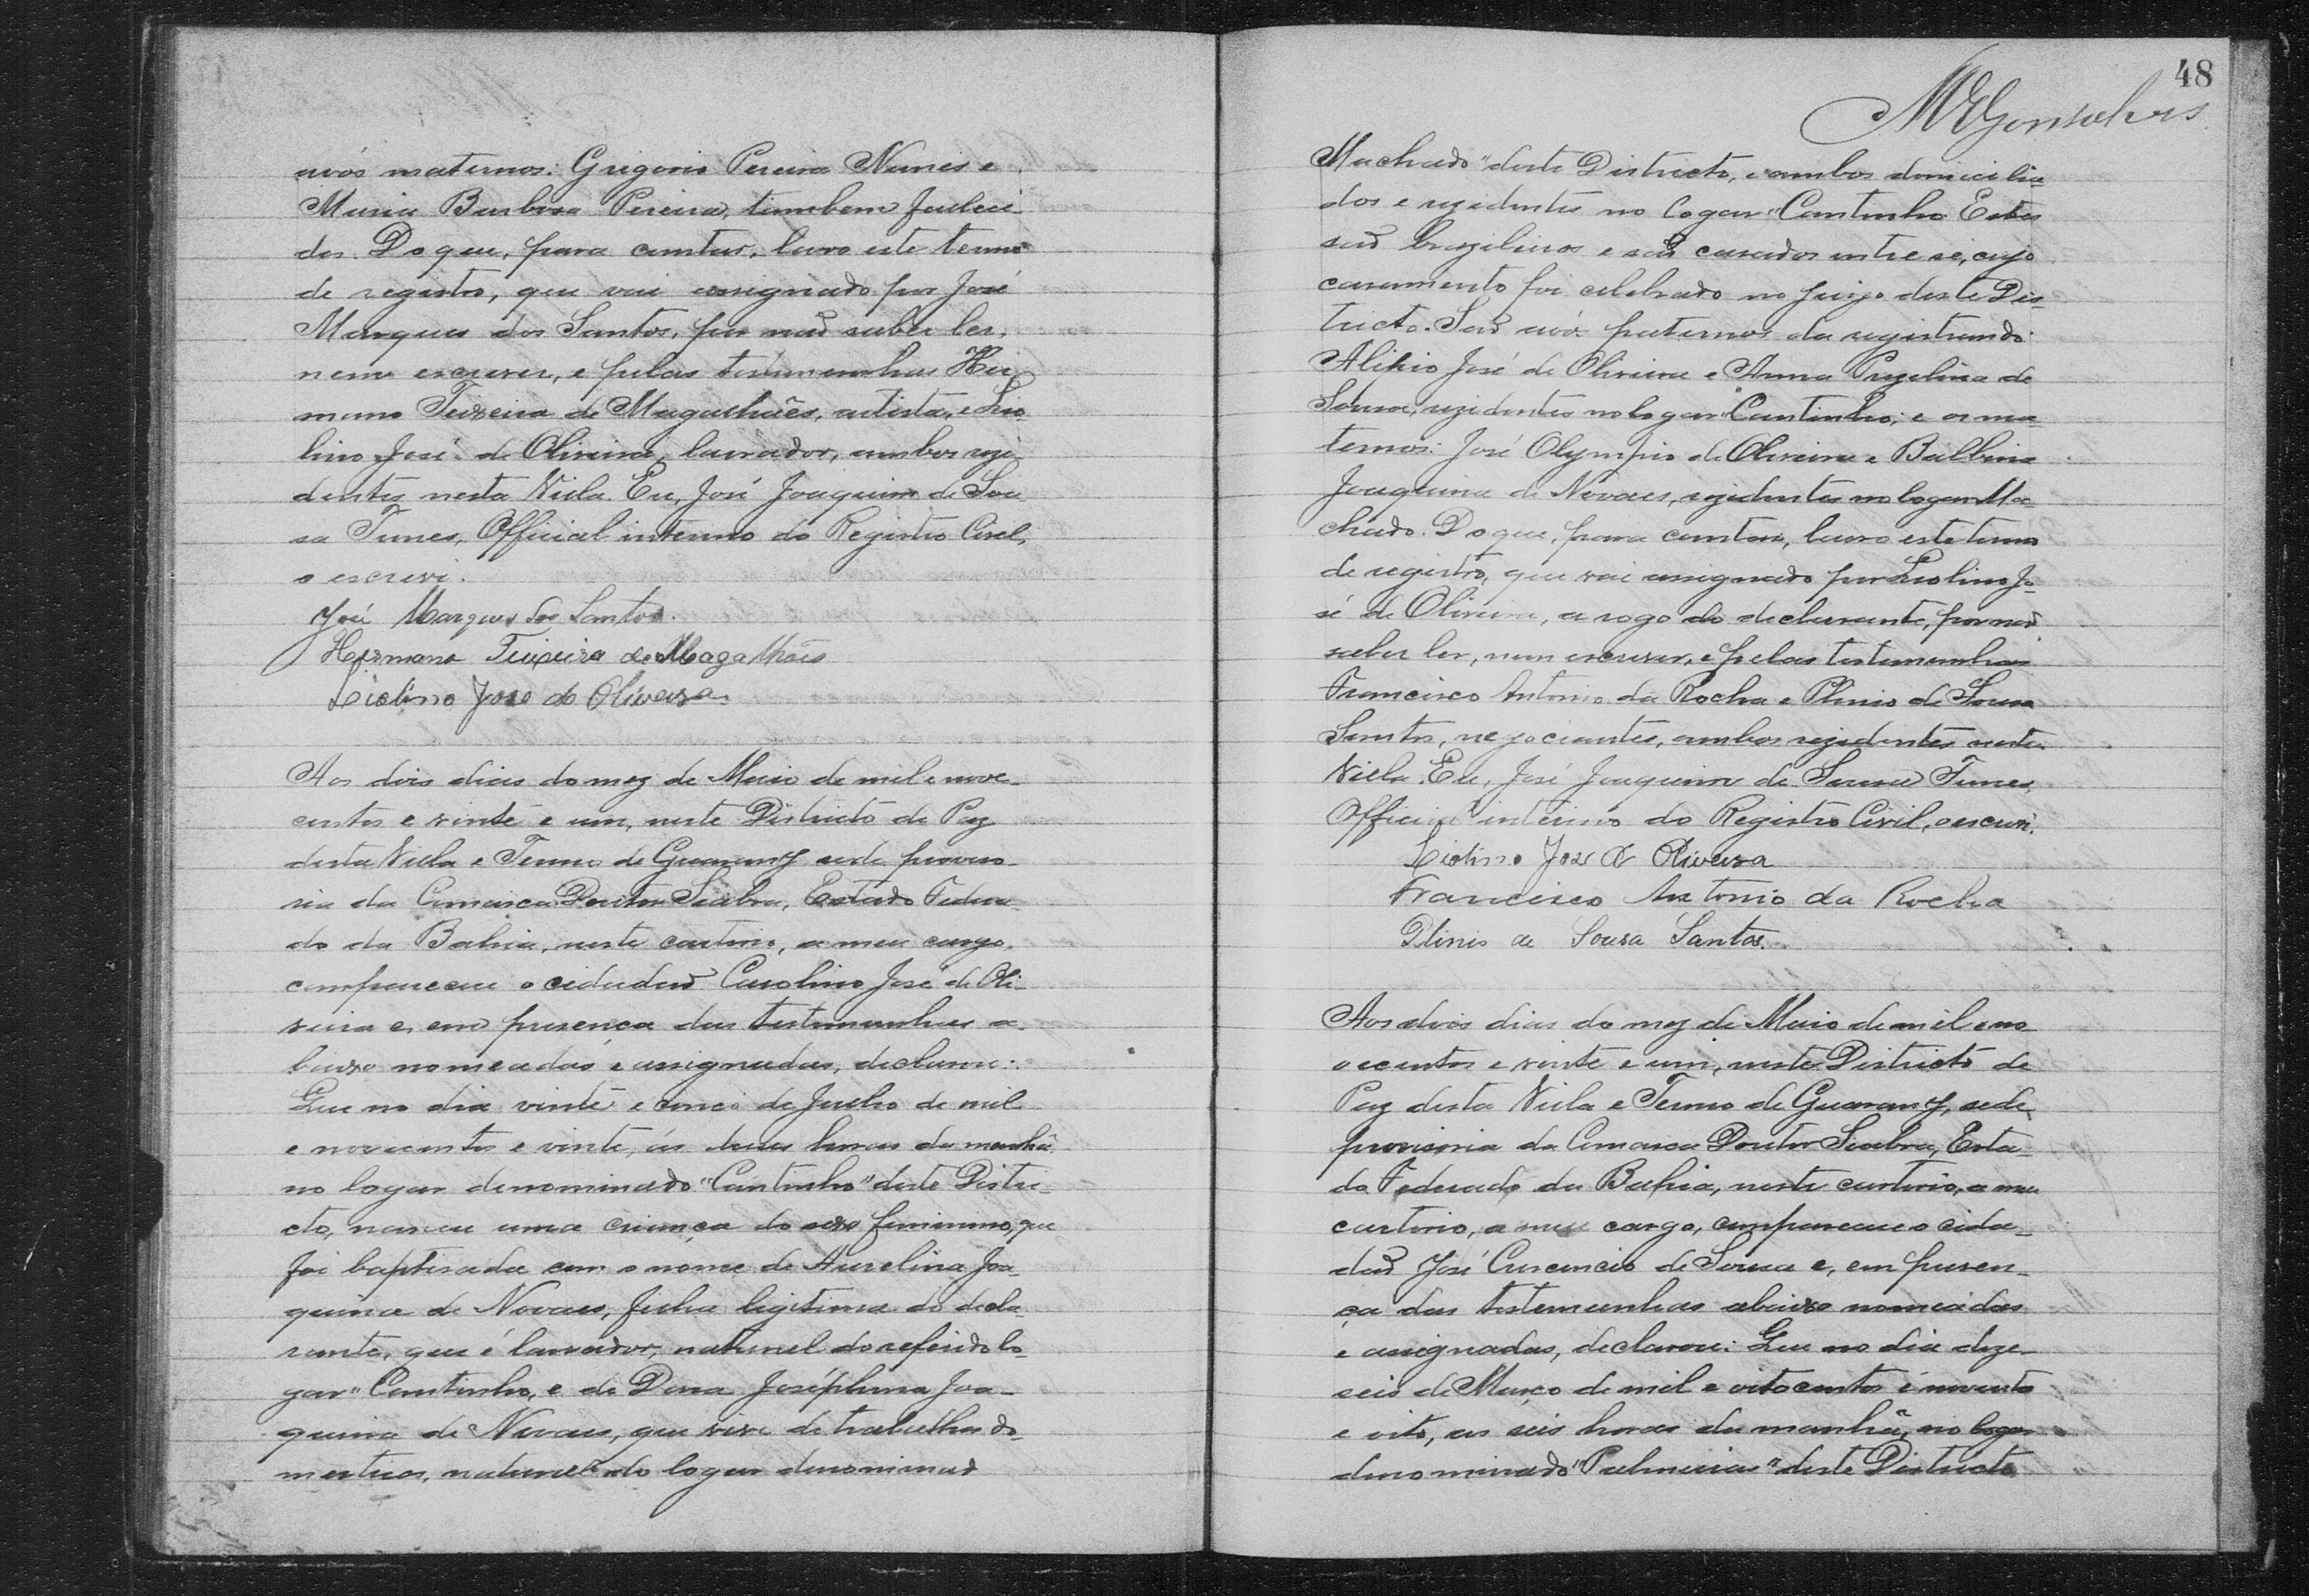 avós maternos: Grigorio Pereira Nunis e
Maria Barbosa Pereira, tambem faleci-
dos. Do que, para constar, lavro este termo
de registro, que vai assignado por José
Marques dos Santos, por não saber ler,
nem escrever, e pelas testemunhas Her
mano Teixeira de Magalhães, artista, e Lio
lino José de Oliveira, lavrador, ambos rezi
dentes nesta Villa. Eu, José Joaquim de Sou
sa Tunes, Official interino do Registro Civel,
o escrevi.
José Marques dos Santos.
Hermano Teixeira de Magalhães
Liolino José de Oliveira
Aos dois dias do mez de Maio de mil e nove-
centos e vinte e um, neste Districto de Paz
desta Villa e Termo de Guarany sede proviso-
ria da Comarca Doutor Seabra, Estado Federa-
do da Bahia, neste cartorio, a meu cargo,
compareceu o cidadão Carolino José de Oli-
veira e, em presença das testemunhas a-
baixo nomeadas e assignadas, declarou:
Que no dia vinte e cinco de Julho de mil
e novecentos e vinte, ás duas horas da manhã,
no logar denominado "Cantinho" deste Distri-
cto, nasceu uma criança do sexo feminino, que
foi baptisada com o nome de Aurelina Joa-
quina de Novaes, filha legitima do decla-
rante, que é lavrador, natural do referido lo-
gar "Cantinho, e de Dona Joséphina Joa-
quina de Novaes, que vive de trabalhos do-
mesticos, natural do logar denominado
48
MEGonsalves
Machado" deste Districto, e ambos domicilia-
dos e rezidentes no logar "Cantinho. Estes
são brazileiros e são casados entre si, cujo
casamento foi celebrado no juizo deste Dis-
tricto. São avós paternos da registrando:
Alipio José de Oliveira e Anna Angelina de
Sousa, rezidentes no logar "Cantinho; e os ma
ternos: José Olympio de Oliveira e Balbina
Joaquina de Novaes, rezidentes no logar Ma-
chado. Do que, para constar, lavro este termo
de registro, que vai assignado por Liolino Jo-
sé de Oliveira, a rogo do declarante, por não
saber ler, nem escrever, e pelas testemunhas
Francisco Antonio da Rocha e Plinio de Sousa
Santos, negociantes, ambos rezidentes nesta
Villa. Eu, José Joaquim de Sousa Tunes,
Official interino do Registro Civil, o escrevi.
Liolino José de Oliveira
Francisco Antonio da Rocha
Plinio de Sousa Santos.
Aos dois dias do mez de Maio de mil e no
vecentos e vinte e um, neste Districto de
Paz desta Villa e Termo de Guarany, sede
provisoria da Comarca Doutor Seabra, Esta-
do Federado da Bahia, neste cartorio, a meu
cartorio, a meu cargo, compareceu o cida-
dão José Crescencio de Sousa e, em presen-
ça das testemunhas abaixo nomeadas
e assignadas, declarou: Que no dia deze-
seis de Março de mil e oitocentos e noventa
e oito, as seis horas da manhã, no logar
denominado "Palmeiras" deste Districto